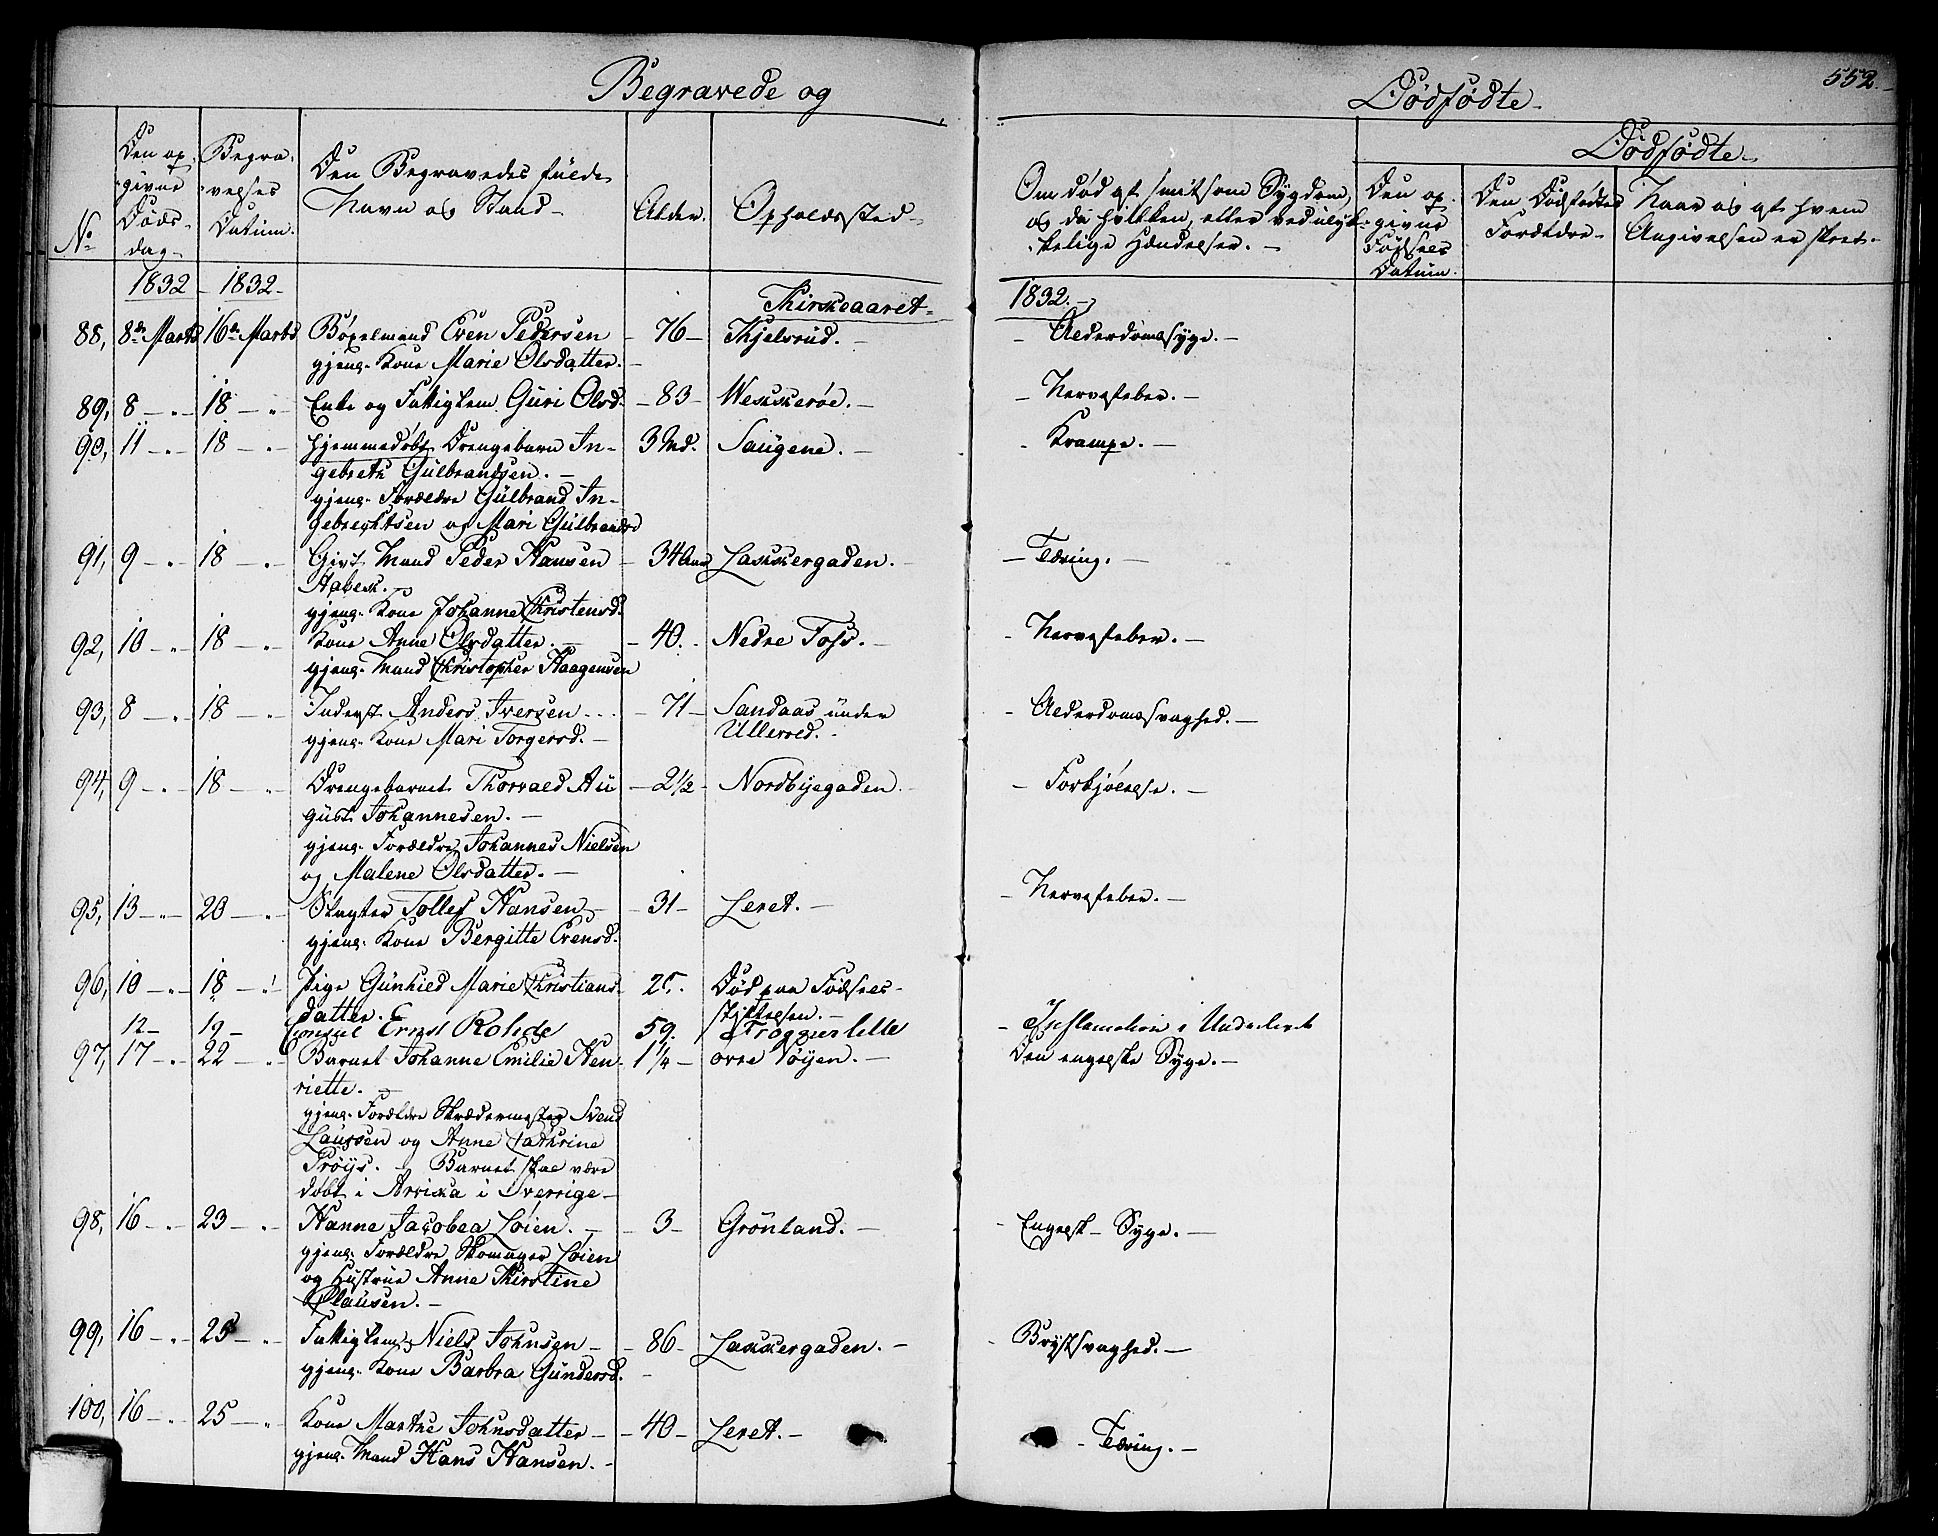 Begravede og
Dødfødte
552.
Dødfødte
No
Den op-
givne
Døds-
dag
Begra-
velses
Datum.
Den Begravedes fulde
Navn og Stand
Alder.
Opholdssted
Om død af smitsom Sygdom,
og da hvilken, eller ved ulyk-
kelige Hændelser.
Den op-
givne
Fødsels
Datum.
Den Dødfødtes
Forældre
Naar og af hvem
Angivelsen er skeet.
1832 1832
1832.
88, 8de Marts 16de Marts Evern Pedersen - 76 - Kjelsrud. - Alderdomssyge.
gjenl. Kone Marie Olsdatter.
89, 8 - " - 18 - " Enke og Fattiglem Guri Olsd. - 83 - Weskerøe. - Nervefeber.
90, 11 - " - 18 - " hjemmedøbt Drengebarn In- 3 Md. Saugene. - Krampe.
gebreth Gulbrandsen.
gjenl. Forældre Gulbrand In-
gebrechtsen og Mari Gulbrandsd
91, 9 - " 18 - " Gift Mand Peder Hansen - 34 Aar Lakkergaden. - Tæring.
gjenl. Kone Johanne Christensd.
92, 10 - " 18 - " Kone Anne Olsdatter. - 40. Nedre Foss. - Nervefeber.
gjenl. Mand Christopher Haagensen
93, 8 - " 18 - " Inderst Anders Iversen - 71 - Sandaas under - Alderdomssvaghed.
gjenl. Kone Mari Torgersd. Ullevold.
94, 9 - " 18 - " Drengebarnet Thorvald Au- - 2 1/2 - Nordbyegaden. - Forkjølelse.
gust Johannesen.
gjenl. Forældre Johannes Nielsen
og Malene Olsdatter.
95, 13 - " 20 - " Slagter Tollef Hansen - 31 - Leret. - Nervefeber.
gjenl. Kone Bergitte Evensd.
96, 10 - " 18 - " Pige Gunhild Marie Christians- 25. Død paa Fødsels-
datter. stiftelsen.
12 - 19 - Consul Ernst Rohde 59. - Inflamation i Underlivet
97, 17 - " 22 - " Barnet Johanne Emilie Hen- 1 1/4 - øvre Vøyen. - Den engelske Syge.
riette.
gjenl. Forældre Skrædermester Svend
Laussen og Anne Cathrine
Prøijs. - Barnet skal være
døbt i Arvika i Sverrige
98, 16 - " 23 - " Hanne Jacobea Løien. - 3 - Grönland. - Engelsk Syge.
gjenl. Forældre Skomager Løien
og Hustrue Anne Kirstine
Clausen.
99, 16 - " 25 - " Fattiglem Niels Johnsen - 86 - Lakkergaden. - Brystsvaghed.
gjenl. Kone Barbra Gundersd.
100, 16 - " 25 - " Kone Marthe Johnsdatter - 40 - Leret. - Tæring.
gjenl. Mand Hans Hansen.